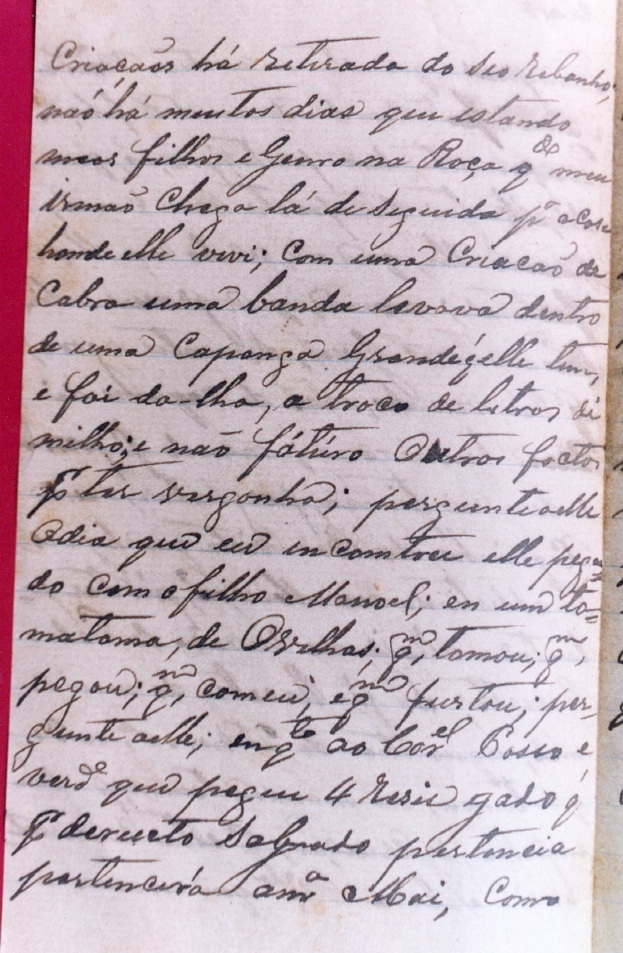 Criaçaõs há retirada do seo rebanho;
naõ há muntos dias que estando
meos filhos e Genro na Roça q̃ do meu
irmaõ Chega lá de seguida pª a casa
honde elle vivi; Com uma Criacaõ de
Cabra uma banda levava dentro
de uma Capanga Grande q̃ elle tem,
e foi da-lha, a troco de litros di
milho; e naõ fatúro Outros factos
p̃ ter vergonha; pergunte aelle
odia que eu incomtrei elle pegan
do com o filho Manoel; en um to-
matoma, de Ovelhas; qm, tomou; qm,
pegou; qm, comeu, e qm furtou; per-
gunte aelle; en qto ao Corel Posso é
verde que peguei 4 resis gado q̃
p̃ dereito Sagrado pertencia
pertencerá a mª Mai, Como